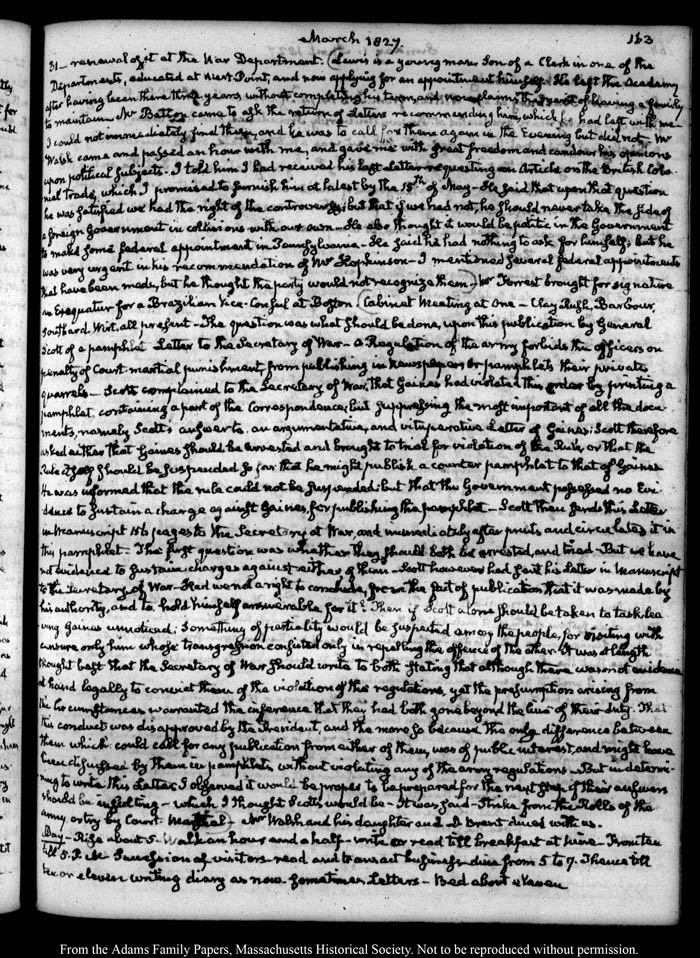 March 1827.
163
31 – renewal of it at the War Department. (Lewis is a young man, Son of a Clerk in one of the
Departments, educated at West-Point, and now applying for an appointment himself. He left the Academy
after having been there three years, without completing his term, and now claims the merit of having a family
to maintain. Mr Batton came to ask the return of Letters recommending him, which he had left with me
I could not immediately find them, and he was to call for them again in the Evening but did not – Mr
Walsh came and passed an hour with me, and gave me with great freedom and candour his opinions
upon political subjects. I told him I had received his last Letter requesting an Article on the British Colo-
nial trade, which I promised to furnish him at latest by the 15th of May – He said that upon that question
he was satisfied we had the right of the controversy; but that if we had not, he should never take the side of
a foreign Government in collisions with our own – He also thought it would be politic in the Government
to make some federal appointment in Pennsylvania – He said he had nothing to ask for himself; but he
was very urgent in his recommendation of Mr Hopkinson – I mentioned several federal appointments
that have been made, but he thought the party would not recognize them –) Mr Forrest brought for signature
an Exequatur for a Brazilian Vice-Consul at Boston (Cabinet Meeting at One – Clay Rush, Barbour,
Southard, Wirt, all present – The question was what should be done, upon this publication by General
Scott of a pamphlet Letter to the Secretary of War – A Regulation of the army forbids the officers on
penalty of Court-martial punishment, from publishing in Newspapers or pamphlets their private
quarrels – Scott complained to the Secretary of War, that Gaines had violated this order by printing a
pamphlet, containing a part of the Correspondence, but suppressing the most important of all the docu-
ments, namely Scott's answer to an argumentative, and vituperative Letter of Gaines: Scott therefore
asked either that Gaines should be arrested and brought to trial for violation of the Rule, or that the
Rule itself should be suspended so far that he might publish a counter pamphlet to that of Gaines
He was informed that the rule could not be suspended; but that the Government possessed no Evi-
dence to sustain a charge against Gaines, for publishing the pamphlet – Scott then sends this Letter
in Manuscript 156 pages to the Secretary of War, and immediately after prints and circulates it in
this pamphlet – The first question was whether they should both be arrested, and tried – But we have
not evidence to sustain charges against either of them – Scott however had sent his Letter in Manuscript
to the Secretary of War – Had we not a right to conclude, from the fact of publication that it was made by
his authority, and to hold himself answerable for it? Then if Scott alone should be taken to task, lea-
ving Gaines unnoticed; Something of partiality would be suspected among the people, for visiting with
censure only him whose transgression consisted only in repelling the offence of the other – It was at length
thought best that the Secretary of War should write to both stating that although there was not evidence
at hand legally to convict them of the violation of the regulations, yet the presumption arising from
the circumstances warranted the inference that they had both gone beyond the line of their duty. That
this conduct was disapproved by the President, and the more so because the only difference between
them which could call for any publication from either of them, was of public interest, and might have
been discussed by them in pamphlets, without violating any of the army regulations – But in determi-
ning to write this Letter, I observed it would be proper to be prepared for the next step if their answers
should be insulting – which I thought Scott's would be – It was said – Strike from the Rolls of the
army, or try by Court-Martial – Mr Walsh and his daughter and D Brent dined with us.
Day – Rise about 5. Walk an hour and a half – write or read till breakfast at nine – From ten
till 5. P.M. Succession of visitors – read and transact business – dine from 5 to 7. Thence till
ten or eleven writing diary as now sometimes Letters – Bed about eleven
From the Adams Family Papers, Massachusetts Historical Society. Not to be reproduced without permission.